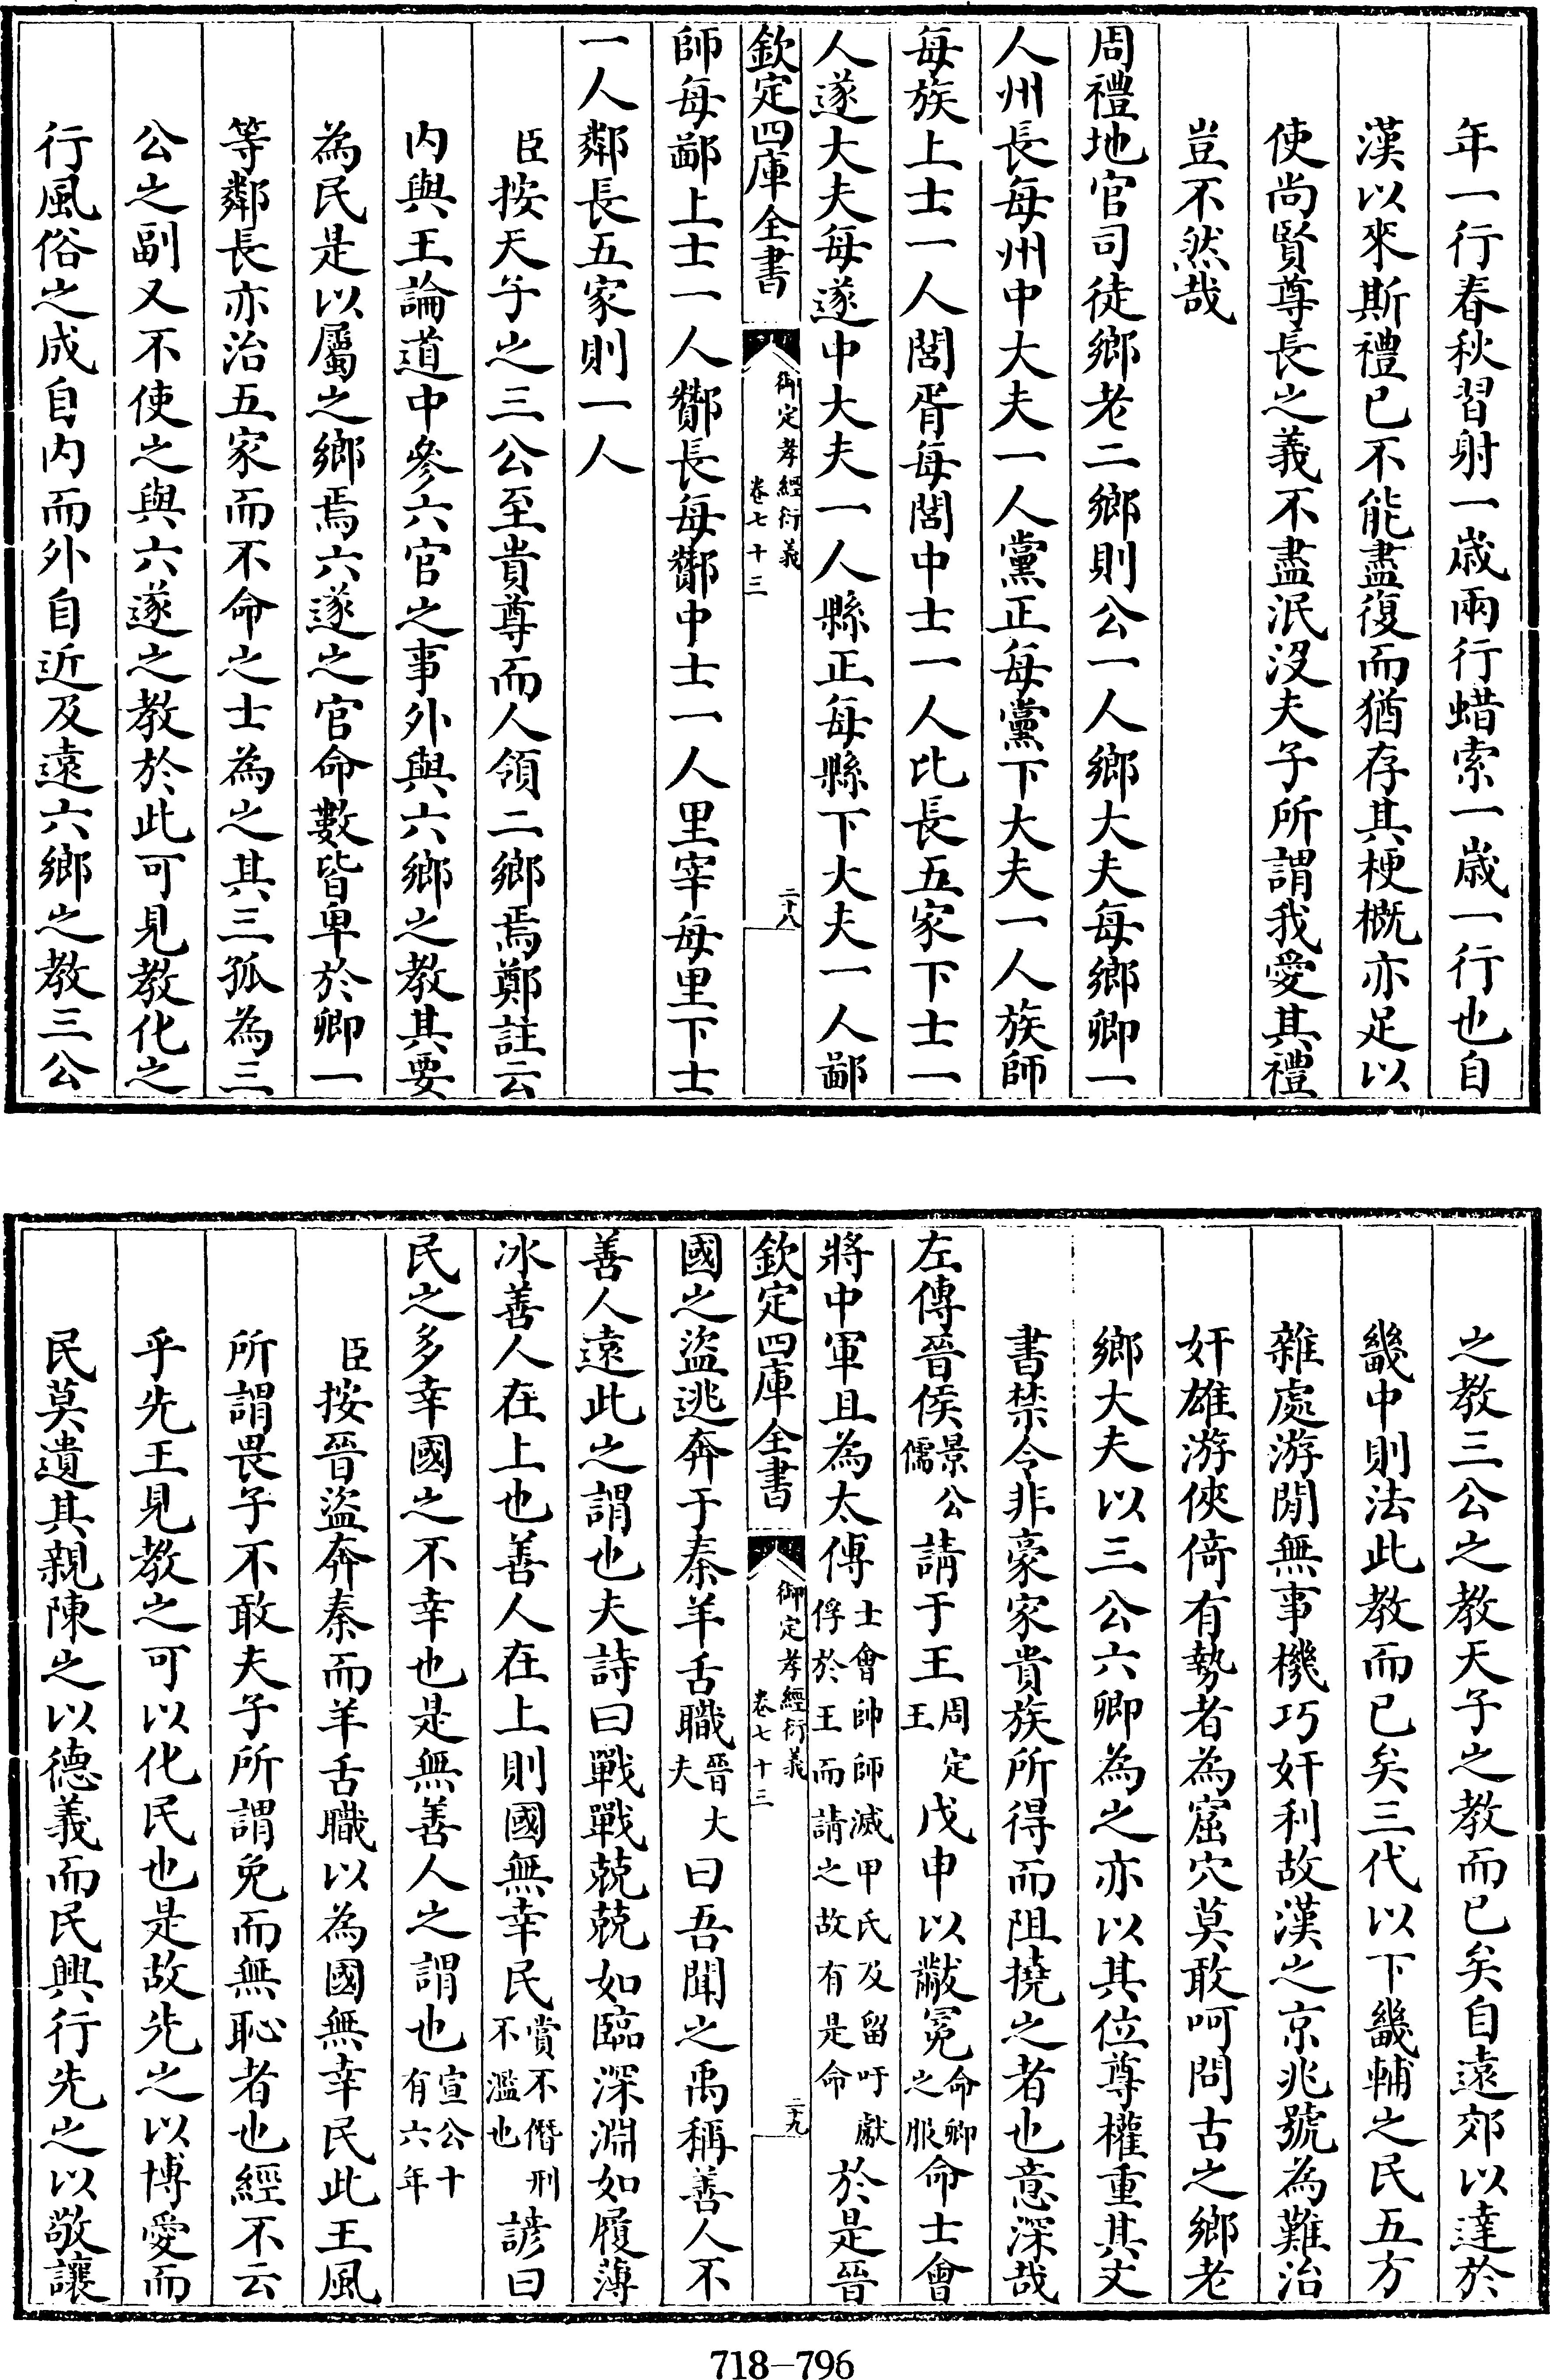 年一行春秋習射一歲兩行蜡索一歲一行也自
漢以來斯禮已不能盡復而猶存其梗概亦足以
使尚賢尊長之義不盡泯沒夫子所謂我愛其禮
豈不然哉
周禮地官司徒鄉老二鄉則公一人鄉大夫每鄉卿一
人州長每州中大夫一人黨正每黨下大夫一人族師
每族上士一人閭胥每閭中士一人比長五家下士一
人遂大夫每遂中大夫一人縣正每縣下大夫一人鄙
欽定四庫全書 御定孝經衍義 卷七十三 二十八
師每鄙上士一人酇長每酇中士一人里宰每里下士
一人鄰長五家則一人
臣按天子之三公至貴尊而人領二鄉焉鄭註云
内與王論道中參六官之事外與六鄉之教其要
為民是以屬之鄉焉六遂之官命數皆卑於卿一
等鄰長亦治五家而不命之士為之其三孤為三
公之副又不使之與六遂之教於此可見教化之
行風俗之成自内而外自近及遠六鄉之教三公
之教三公之教天子之教而已矣自遠郊以達於
畿中則法此教而已矣三代以下畿輔之民五方
雜處游閒無事機巧奸利故漢之京兆號為難治
奸雄游俠倚有勢者為窟穴莫敢呵問古之鄉老
鄉大夫以三公六卿為之亦以其位尊權重其文
書禁令非豪家貴族所得而阻撓之者也意深哉
左傳晉侯景公儒請于王周定王戊申以黻冕命卿之服命士會
將中軍且為太傅士會帥師滅甲氏及留吁獻俘於王而請之故有是命於是晉
欽定四庫全書 御定孝經衍義 卷七十三 二十九
國之盜逃奔于秦羊舌職晉大夫曰吾聞之禹稱善人不
善人遠此之謂也夫詩曰戰戰兢兢如臨深淵如履薄
冰善人在上也善人在上則國無幸民賞不僭刑不濫也諺曰
民之多幸國之不幸也是無善人之謂也宣公十有六年
臣按晉盜奔秦而羊舌職以為國無幸民此王風
所謂畏子不敢夫子所謂免而無恥者也經不云
乎先王見教之可以化民也是故先之以博愛而
民莫遺其親陳之以德義而民興行先之以敬讓
718-796